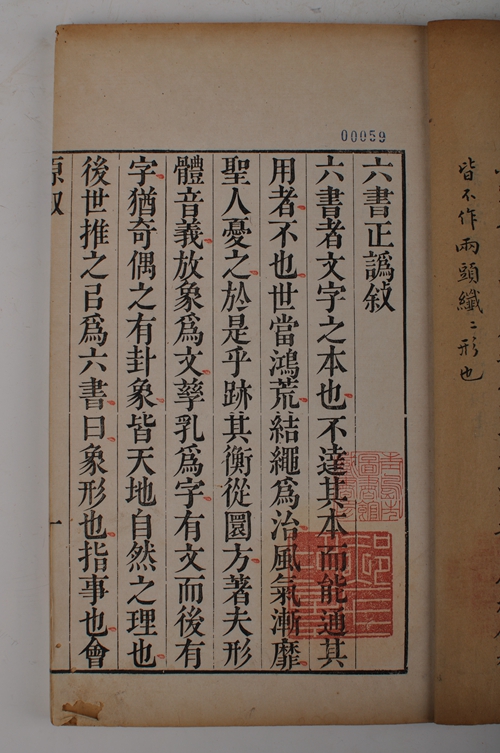 皆不作兩頭纖ミ形也
00059
六書正譌敍
六書者文字之本也不達其本而能通其
用者不也世當鴻荒結繩爲治風氣漸靡
聖人憂之於是乎跡其衡從圜方著夫形
體音義放象爲文孳乳爲字有文而後有
字猶奇偶之有卦象皆天地自然之理也
後世推之㠯爲六書曰象形也指事也會
原敍
一